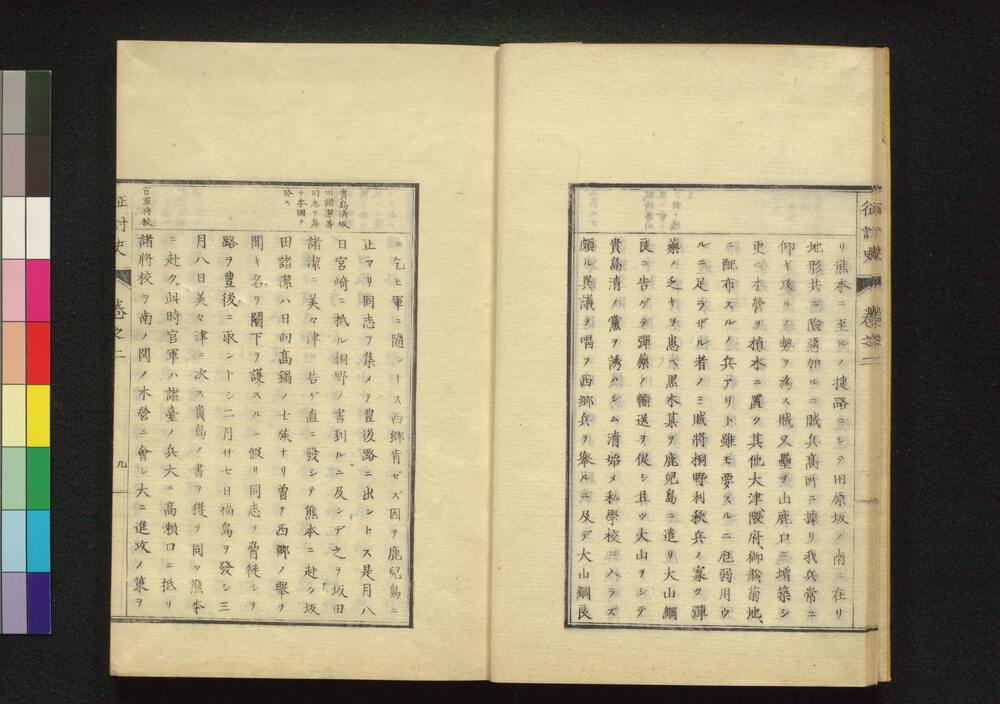 リ熊本ニ至ルノ捷路ニシテ田原坂ノ南ニ在リ
地形共ニ險惡加ルニ賊兵髙所ニ據リ我兵常ニ
仰キ攻ルノ勢ヲ為ス賊又壘ヲ山鹿口ニ增築シ
更ニ本營ヲ植木ニ置ク其他大津、隈府、御船、菊地、
ニ配布スルノ兵アリト雖モ要スルニ尫弱用ウ
ルニ足ラザル者ノミ賊將桐野利秋兵ノ寡ク彈
藥ノ乏キヲ患ヘ黒木某ヲ鹿兒島ニ遣リ大山綱
良ニ告ゲテ彈藥ノ輸送ヲ促シ且ツ大山ヲシテ
貴島清ノ黨ヲ誘ハシム清始メ私學校ニ入ラズ
頗ル異議ヲ唱フ西郷兵ヲ擧ルニ及デ大山綱良
ニ乞ヒ軍ニ随ントス西郷肯ゼズ因テ鹿兒島ニ
止マリ同志ヲ集メテ豊後路ニ出ントス是月八
日宮崎ニ抵ル桐野ノ書到ルニ及ンデ之ヲ坂田
諸潔ニ美々津ニ告ゲ直ニ發シテ熊本ニ赴ク坂
田諸潔ハ日向髙鍋ノ士族ナリ曽テ西郷ノ擧ヲ
聞キ名ヲ闕下ヲ護スルニ假リ同志ヲ脅従シテ
路ヲ豊後ニ取ントシ二月廿七日福島ヲ發シ三
月八日美々津ニ次ス貴島ノ書ヲ獲テ同ク熊本
ニ赴ク此時官軍ハ諸臺ノ兵大ニ高瀬口ニ抵リ
諸將校ヲ南ノ関ノ本營ニ會シ大ニ進攻ノ策ヲ
貴島清坂
田諸潔等
同志ヲ集
官軍將校
征討史
卷之二
九